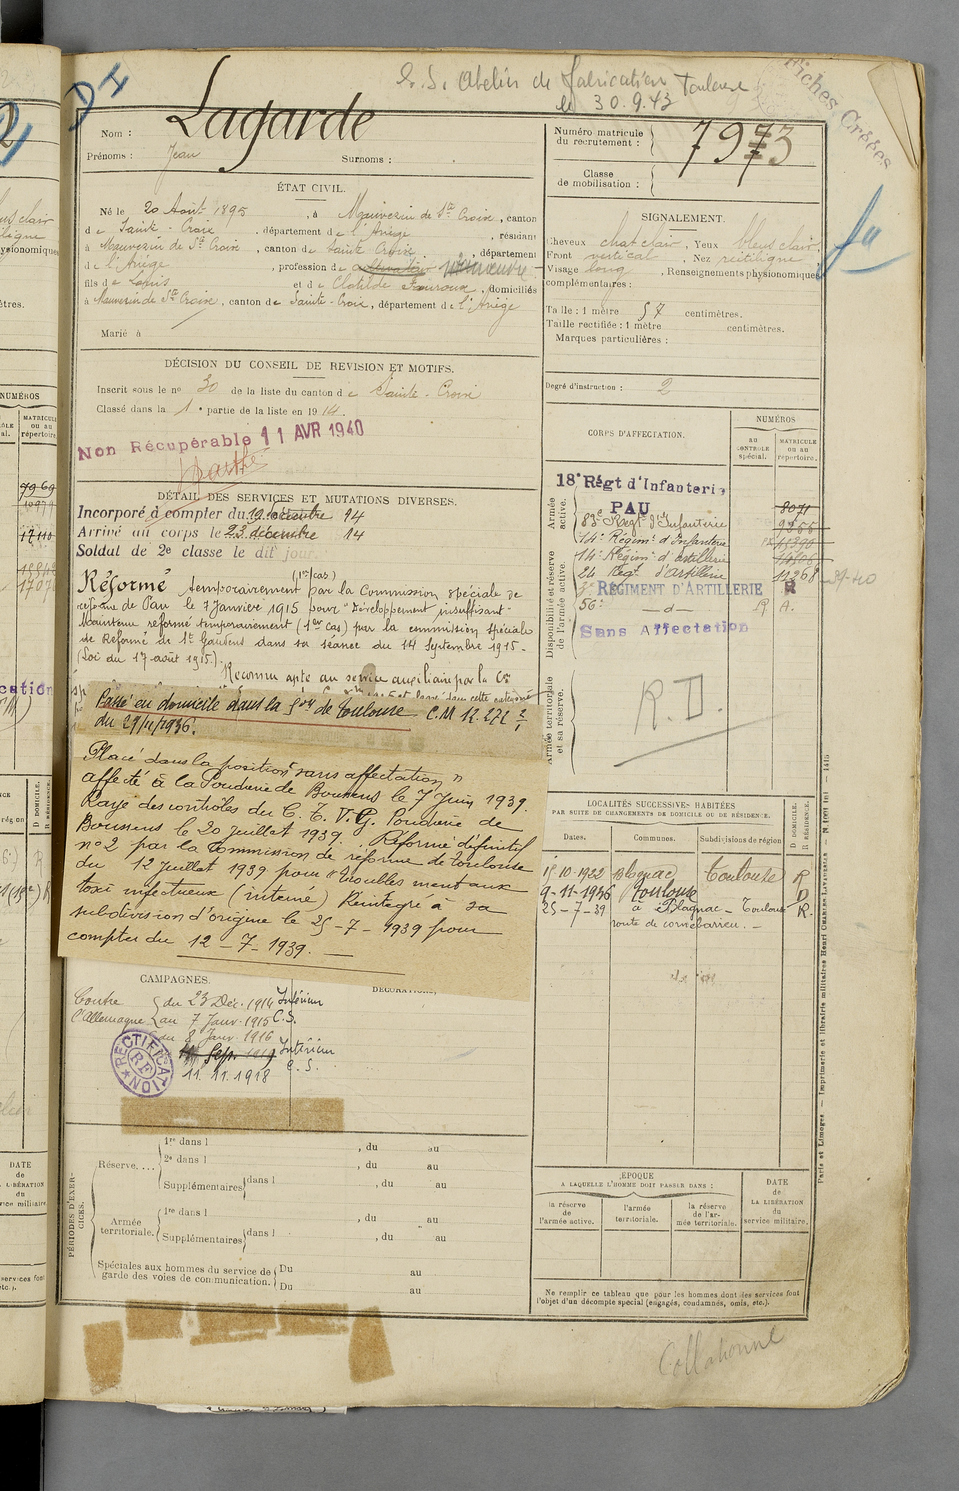 D H
Atelier de fabrication Toulouse
le 30.9.43
Fiches Créées
Nom : Lagarde
Prénoms : Jean Surnoms :
Numéro matricule du recrutement : 7973
Classe de mobilisation :
ÉTAT CIVIL.
Né le 20 Août 1895, à Mauvezin de Ste Croix, canton
de Sainte-Croix, département de l'Ariège, résidant
à Mauvezin de Ste Croix, canton de Sainte Croix, département
de l'Ariège, profession de cultivateur manœuvre
fils de Louis et de Clotilde Fouroux, domiciliés
à Mauvezin de Ste Croix, canton de Sainte-Croix, département de l'Ariège
Marié à
SIGNALEMENT.
Cheveux chat clair, Yeux bleus clair,
Front vertical, Nez rectiligne
Visage long, Renseignements physionomiques
complémentaires :
Taille : 1 mètre 57 centimètres.
Taille rectifiée : 1 mètre centimètres.
Marques particulières :
Degré d'instruction : 2
DÉCISION DU CONSEIL DE REVISION ET MOTIFS.
Inscrit sous le no 30 de la liste du canton de Sainte-Croix
Classé dans la 1e partie de la liste en 1914.
Non Récupérable 11 AVR 1940
DÉTAIL DES SERVICES ET MUTATIONS DIVERSES.
Incorporé à compter du 19 décembre 14
Arrivé au corps le 23 décembre 14
Soldat de 2e classe le dit jour.
Réformé temporairement (1er cas) par la Commission spéciale de
réforme de Pau le 7 Janvier 1915 pour "Développement insuffisant"
Maintenu réformé temporairement (1er cas) par la commission spéciale
de Réforme de St Gaudens dans sa séance du 14 Septembre 1915.
(Loi du 17 août 1915).
Reconnu apte au service auxiliaire par la Con
Passé en domicile dans la Son de Toulouse C.M 12.272 2/1
du 29/11/1936.
Placé dans la position "sans affectation"
affecté à la Poudrerie de Boussens le 7 juin 1939.
Rayé des contrôles du C. T. V. G. Poudrerie de
Boussens le 20 juillet 1939. Réformé définitif
no 2 par la Commission de réforme de Toulouse
du 12 juillet 1939 pour "troubles mentaux
toxi infectueux (interné) Réintegré à sa
subdivision d'origine le 25-7-1939 pour
compter du 12-7-1939.
CORPS D'AFFECTATION.
NUMÉROS
AU CONTROLE spécial.
MATRICULE ou au répertoire.
Armée active.
18e Régt d'Infanterie
PAU 8071
83e Régt d'Infanterie
14e Régimt d'Infanterie
Disponibilité et réserve de l'armée active.
14e Régimt d'artillerie
24 Régt d'artillerie 11268
RÉGIMENT D'ARTILLERIE R
56e -d- R A.
Sans Affectation
Armée territoriale et sa réserve.
R.D.
LOCALITÉS SUCCESSIVES HABITÉES
PAR SUITE DE CHANGEMENTS DE DOMICILE OU DE RÉSIDENCE.
Dates. Communes. Subdivisions de région D. DOMICILE. R. RÉSIDENCE.
15-10-1922 Blagnac Toulouse R
9-11-1936 Toulouse D
25-7-39 à Blagnac - Toulouse R.
route de cornebarrieu.
CAMPAGNES.
DÉCORATIONS,
Contre l'Allemagne
du 23 Déc. 1914 Intérieur
au 7 Janv. 1915 C.S.
du 8 Janv. 1916 Intérieur
Sep. 1919 C.S.
11.11.1918
RECTIFICATION RF
PÉRIODES D'EXERCICES.
Réserve....
1re dans l , du au
2e dans l , du au
Supplémentaires dans l , du au
Armée territoriale.
1re dans l , du au
Supplémentaires dans l , du au
Spéciales aux hommes du service de garde des voies de communication.
Du au
Du au
ÉPOQUE
A LAQUELLE L'HOMME DOIT PASSER DANS :
la réserve de l'armée active.
l'armée territoriale.
la réserve de l'armée territoriale.
DATE de LA LIBÉRATION du service militaire.
Ne remplir ce tableau que pour les hommes dont les services font
l'objet d'un décompte spécial (engagés, condamnés, omis, etc.).
Paris et Limoges. — Imprimerie et librairie militaires Henri CHARLES-LAVAUZELLE
Collationné